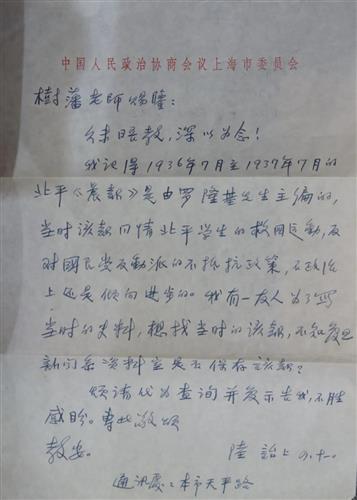 中国人民政治协商会议上海市委员会
樹藩老師赐鑒：
久未晤教，深以为念！
我记得1936年7月至1937年7月的
北平《晨報》是由罗隆基先生主编的，
当时该報同情北平学生的救国运动，反
对國民党反動派的不抵抗政策，在政治
上还是倾向进步的。我有一友人为了写
当时的史料，想找当时的该報，不知复旦
新闻系资料室是否保存该報？
烦请代为查询并赐示告我，不胜
感盼。專此敬颂
教安。 陸詒上 9.十一.
通讯處：本市天平路